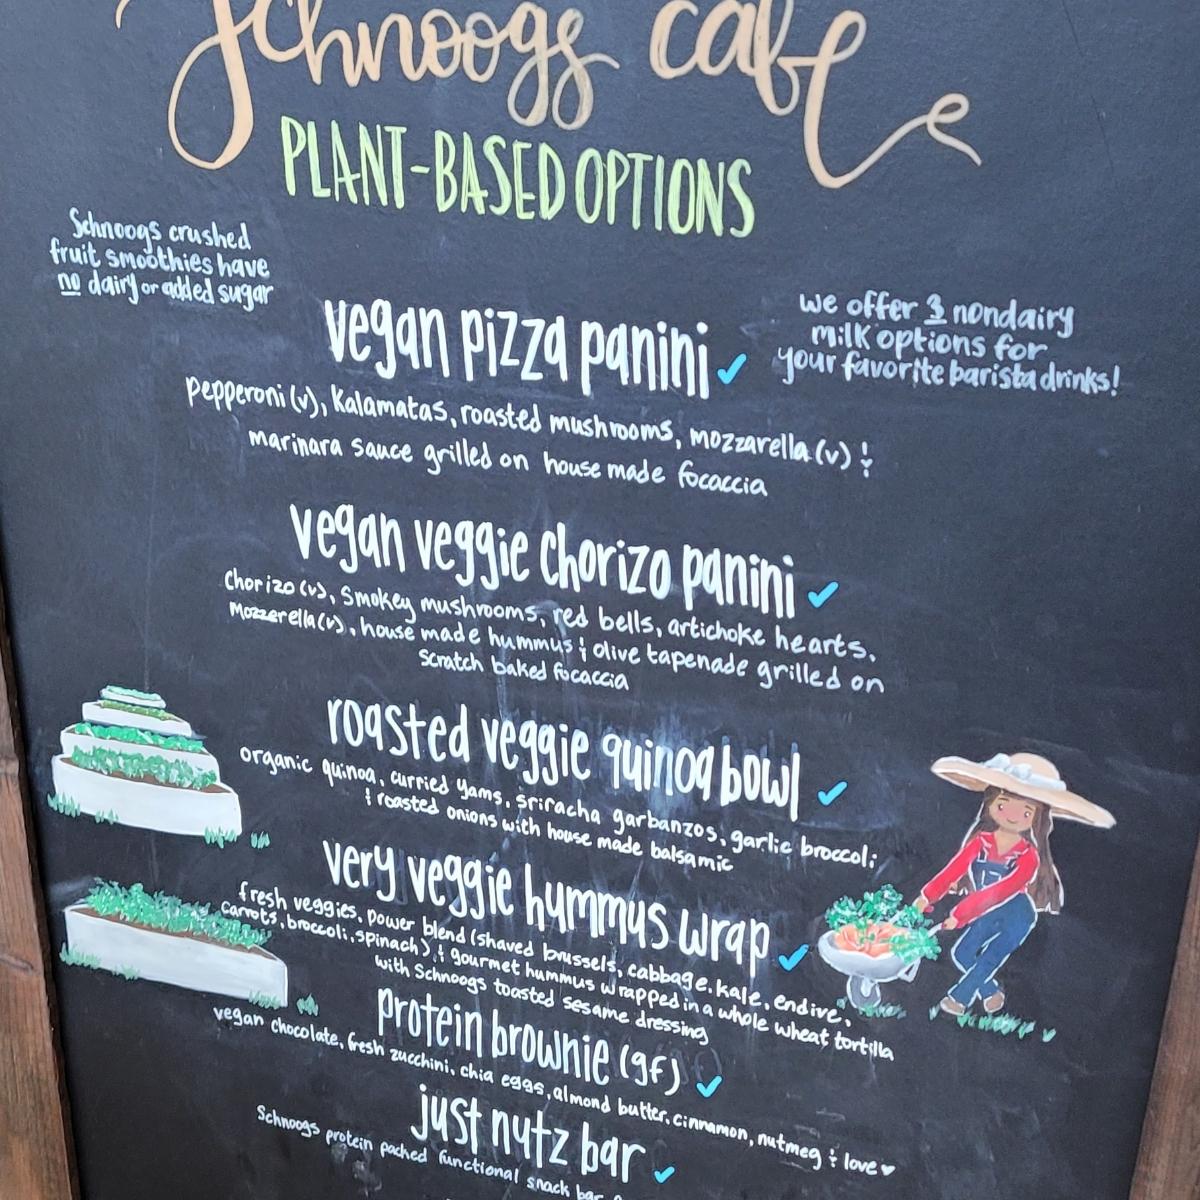 Schnoogs cafe
PLANT-BASED OPTIONS
Schnoogs crushed
fruit smoothies have
no dairy or added sugar
we offer 3 nondairy
milk options for
your favorite barista drinks!
vegan pizza panini
pepperoni (v), Kalamatas, roasted mushrooms, mozzarella (v) &
marinara sauce grilled on house made focaccia
vegan veggie chorizo panini
Chorizo (v), Smokey mushrooms, red bells, artichoke hearts,
Mozzerella (v), house made hummus & olive tapenade grilled on
Scratch baked focaccia
roasted veggie quinoa bowl
organic quinoa, curried yams, sriracha garbanzos, garlic broccoli
& roasted onions with house made balsamic
very veggie hummus wrap
fresh veggies, power blend (shaved brussels, cabbage, kale, endive,
carrots, broccoli, spinach), & gourmet hummus wrapped in a whole wheat tortilla
with Schnoogs toasted sesame dressing
protein brownie (gf)
vegan chocolate, fresh zucchini, chia eggs, almond butter, cinnamon, nutmeg & love
just nutz bar
Schnoogs protein packed functional snack bar